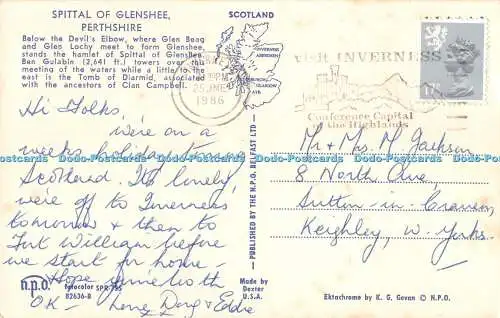 SPITTAL OF GLENSHEE,
PERTHSHIRE
Below the Devil's Elbow, where Glen Beag
and Glen Lochy meet to form Glenshee,
stands the hamlet of Spittal of Glenshee.
Ben Gulabin (2,641 ft.) towers over the
meeting of the waters while a little to the
east is the Tomb of Diarmid, associated
with the ancestors of Clan Campbell.
SCOTLAND
INVERNESS
ABERDEEN
EDINBURGH
GLASGOW
AYR
25 JNE
1986
INVERNESS
Conference Capital
of the Highlands
17P
Hi Folks,
We're on a
weeks holiday to
Scotland. It's lovely
we're off to Inverness
tomorrow & then to
Fort William before
we start for home.
Hope you're both
OK - Love Doug & Eddie
Mr & Mrs M Jackson
8 North Ave,
Sutton-in-Craven,
Keighley, W. Yorks.
PUBLISHED BY THE N.P.O. BELFAST LTD
n.p.o.
fotocolor SPR 765
82636-B
Made by
Dexter
U.S.A.
Ektachrome by K. G. Gevan © N.P.O.
Postcards-Data-Domain Postcards-Data-Domain Postcards-Data-Domain Postcards-Data-Domain